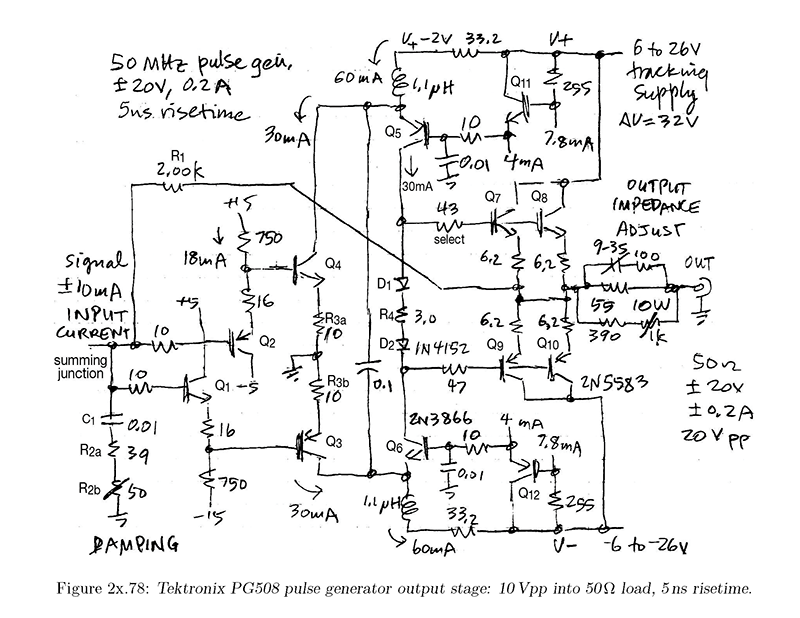 50 MHz pulse gen,
±20V, 0.2A
5ns risetime
V+ -2V
33.2
V+
6 to 26V
tracking
supply
ΔV=32V
60mA
1.1μH
Q11
255
7.8mA
30mA
Q5
10
0.01
4mA
30mA
R1
2.00k
+5
750
18mA
Q4
16
43
select
Q7
Q8
OUTPUT
IMPEDANCE
ADJUST
9-35
100
OUT
6.2
6.2
55
10W
390
1k
signal
±10mA
INPUT
CURRENT
summing
junction
+5
10
Q2
-5
10
Q1
R3a
10
R3b
10
D1
R4
3.0
D2
1N4152
0.1
6.2
6.2
Q9
Q10
47
2N5583
50Ω
±20V
±0.2A
20Vpp
C1
0.01
R2a
39
R2b
50
16
750
-15
Q3
30mA
2N3866
Q6
10
0.01
4mA
7.8mA
Q12
255
1.1μH
33.2
60mA
V-
-6 to -26V
DAMPING
Figure 2x.78: Tektronix PG508 pulse generator output stage: 10 Vpp into 50Ω load, 5 ns risetime.